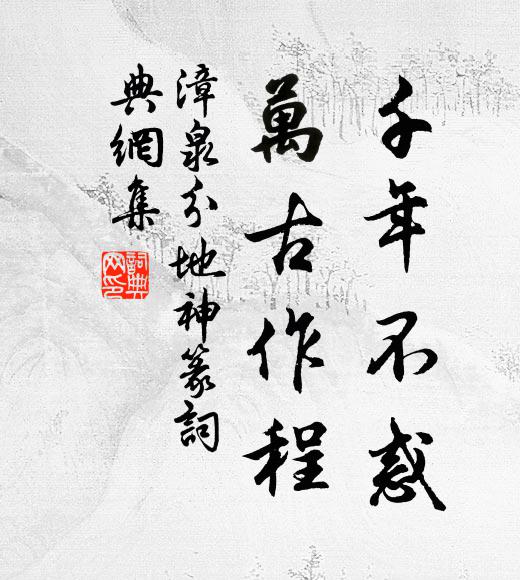 千年不惑
萬古作程
漳泉分地神篆詞
典網集
詞典網印